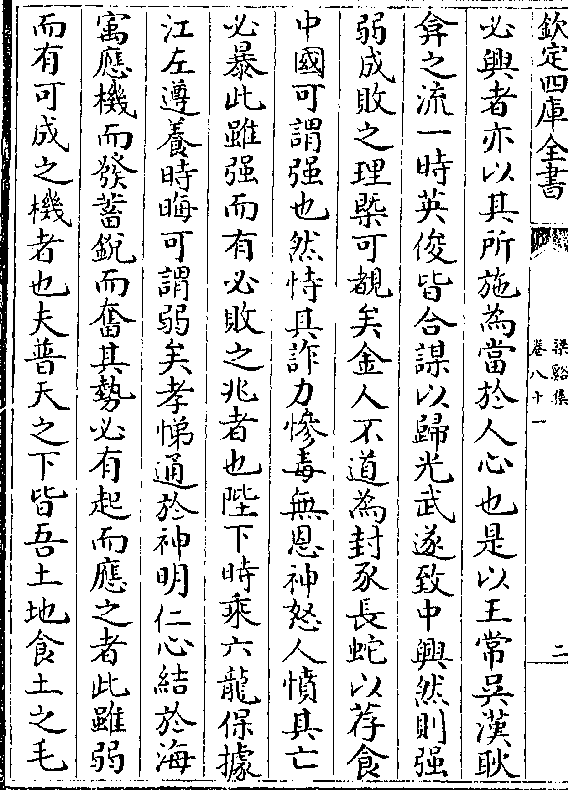 欽定四庫全書
梁谿集
卷八十一
二
必興者亦以其所施為當於人心也是以王常吳漢耿
弇之流一時英俊皆合謀以歸光武遂致中興然則强
弱成敗之理槩可覩矣金人不道為封豕長蛇以荐食
中國可謂强也然恃其詐力慘毒無恩神怒人憤其亡
必暴此雖强而有必敗之兆者也陛下時乘六龍保據
江左遵養時晦可謂弱矣孝悌通於神明仁心結於海
寓應機而發蓄鋭而奮其勢必有起而應之者此雖弱
而有可成之機者也夫普天之下皆吾土地食土之毛